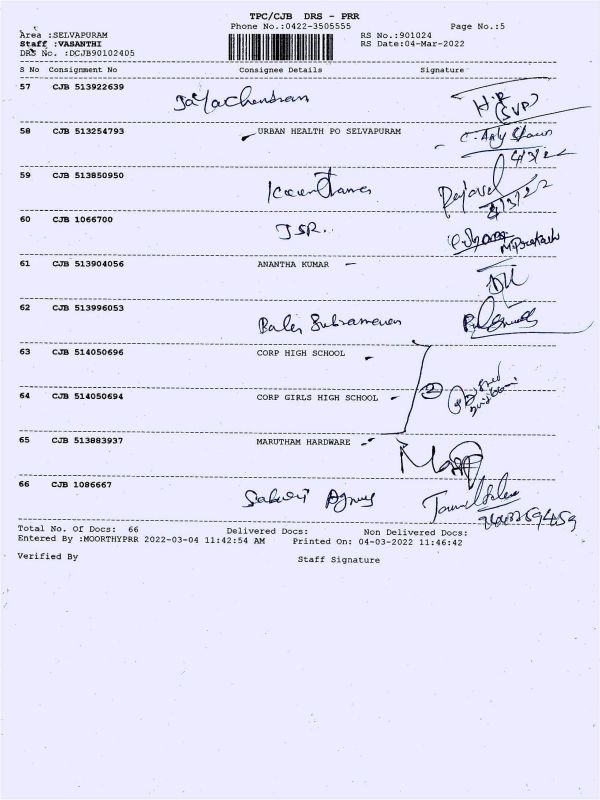 TPC/CJB DRS - PRR
Phone No.:0422-3505555
Page No.:5
Area :SELVAPURAM
RS No.:901024
Staff :VASANTHI
RS Date:04-Mar-2022
DRS No. :DCJB90102405
S No Consignment No Consignee Details Signature
57 CJB 513922639 Jayachendran
58 CJB 513254793 URBAN HEALTH PO SELVAPURAM
4/3/22
59 CJB 513850950
60 CJB 1066700 JSR.
M.Prakash
61 CJB 513904056 ANANTHA KUMAR
62 CJB 513996053 Bala Subramanian
63 CJB 514050696 CORP HIGH SCHOOL
64 CJB 514050694 CORP GIRLS HIGH SCHOOL
65 CJB 513883937 MARUTHAM HARDWARE
66 CJB 1086667
Total No. Of Docs: 66 Delivered Docs: Non Delivered Docs:
Entered By :MOORTHYPRR 2022-03-04 11:42:54 AM Printed On: 04-03-2022 11:46:42
Verified By Staff Signature